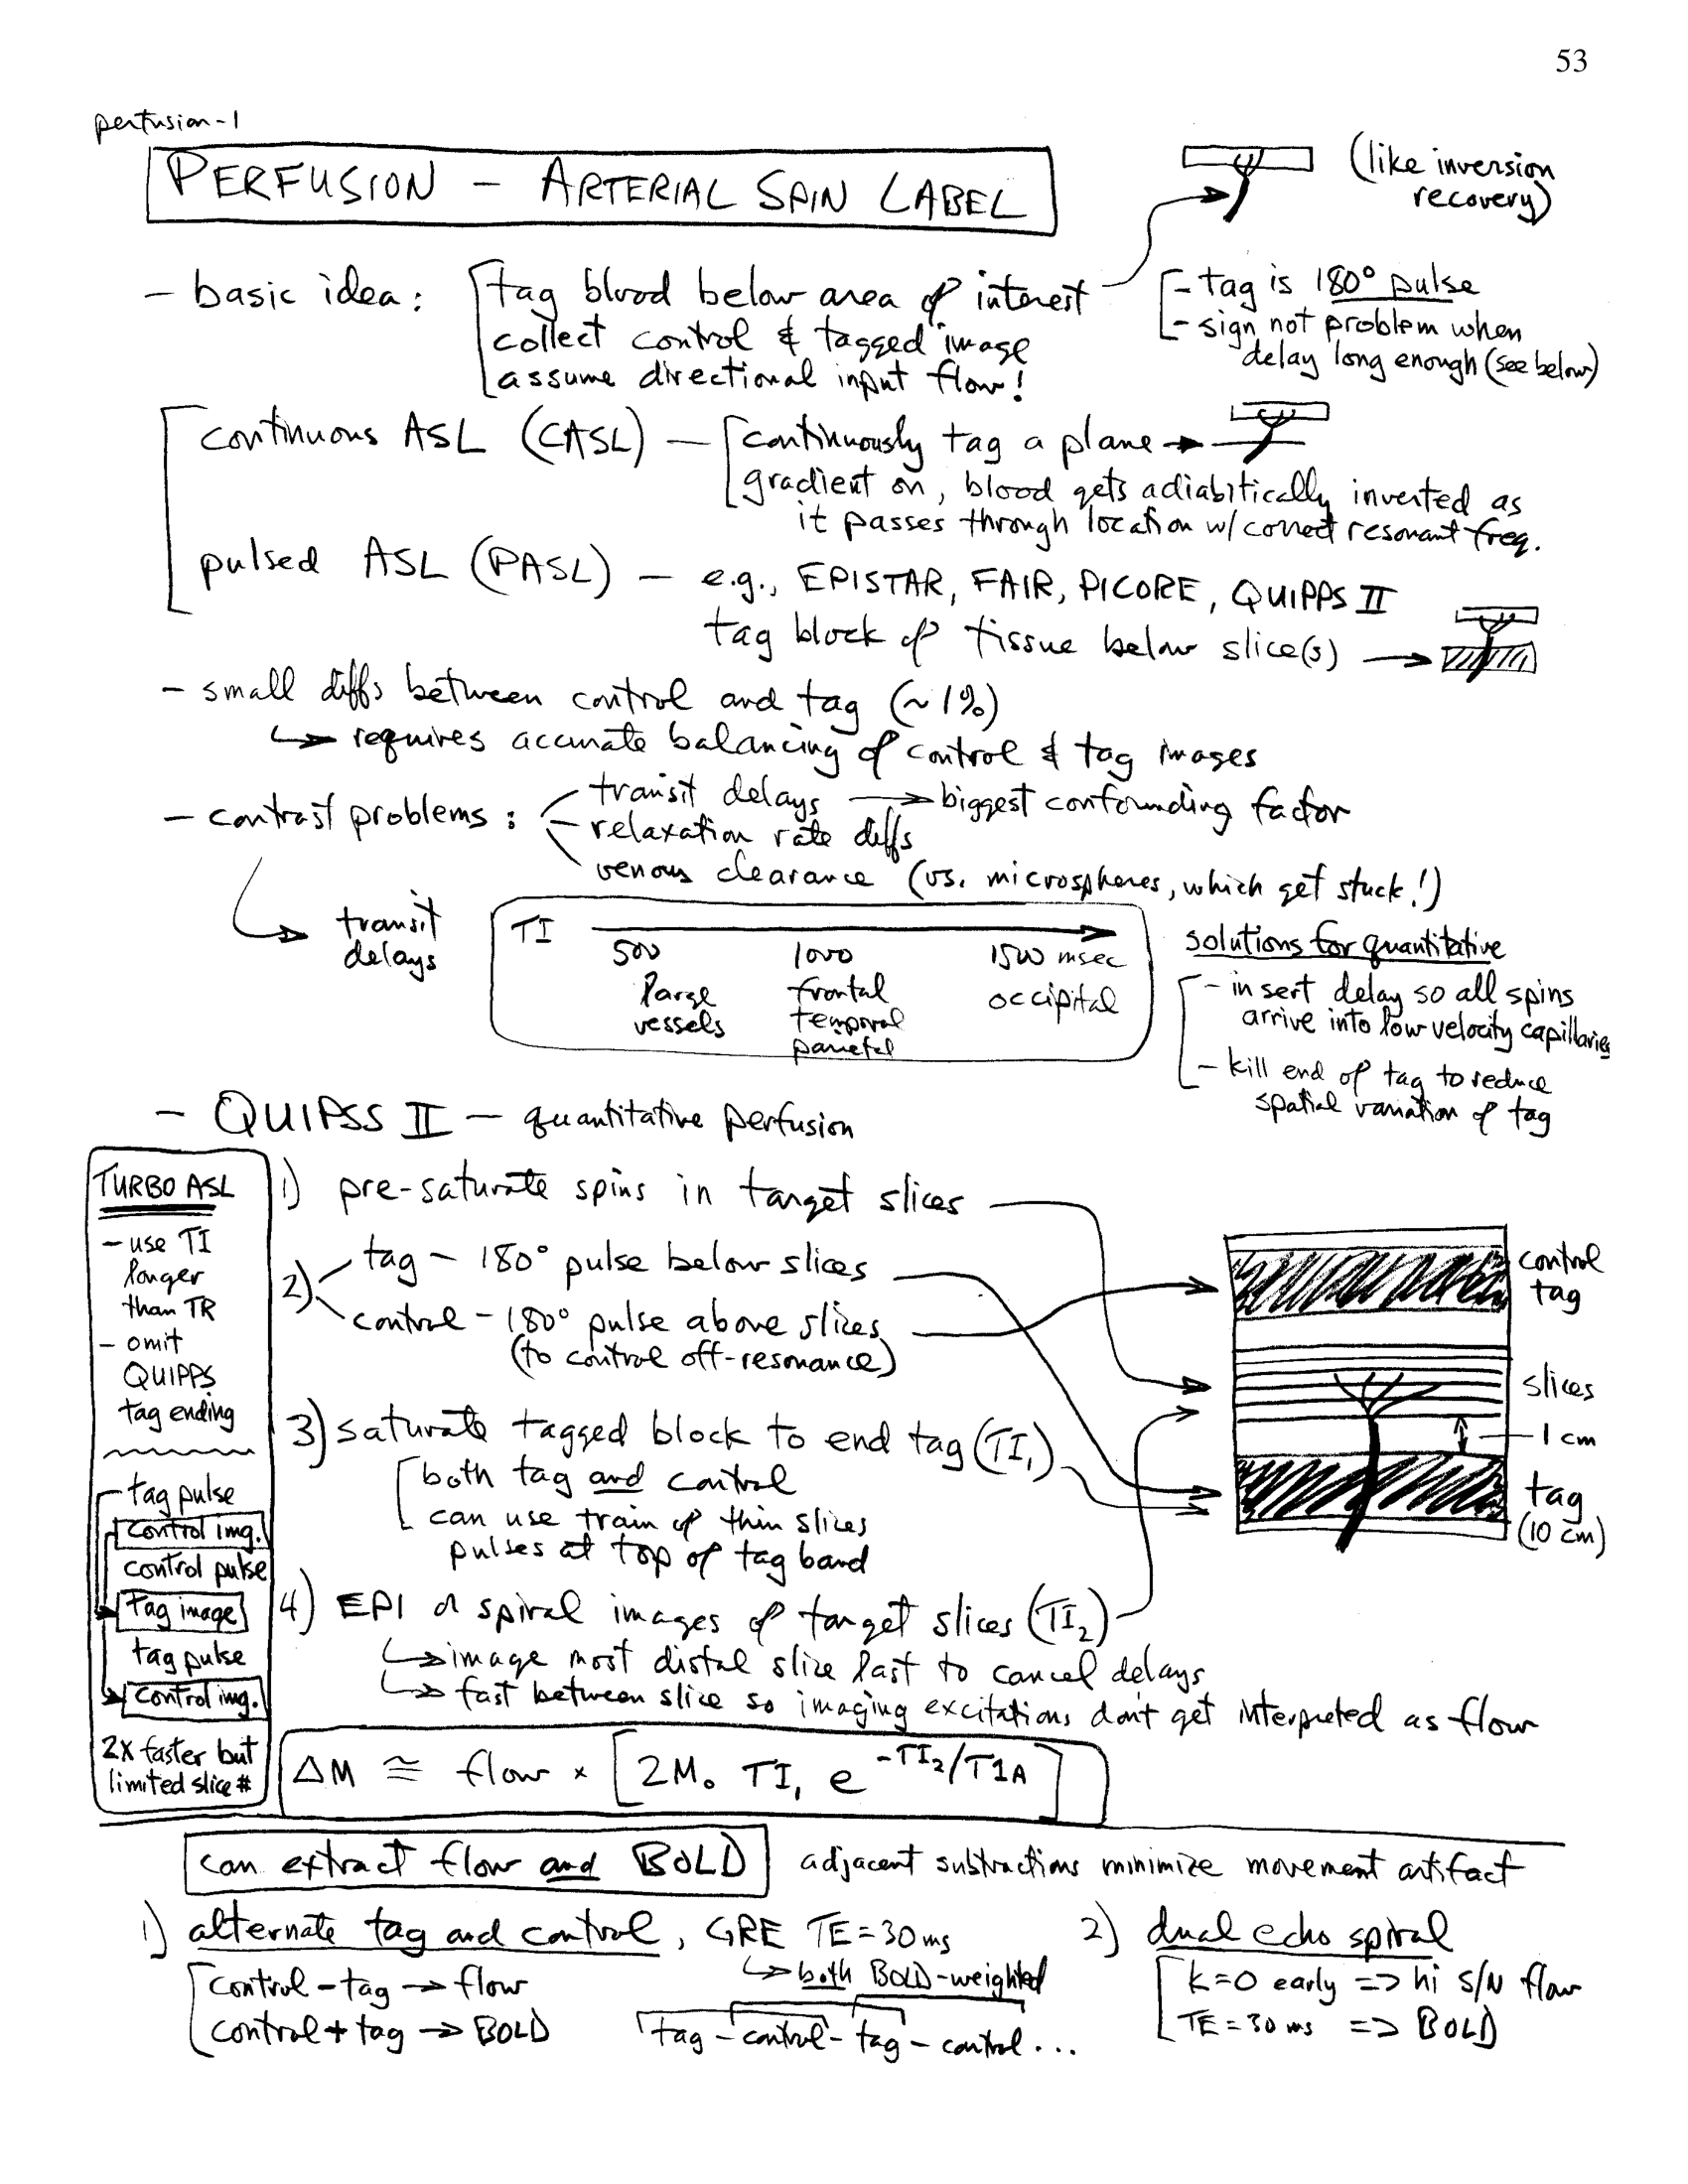 53
perfusion-1
PERFUSION - ARTERIAL SPIN LABEL
(like inversion
recovery)
- basic idea: tag blood below area of interest
collect control & tagged image
assume directional input flow!
- tag is 180° pulse
- sign not problem when
delay long enough (see below)
continuous ASL (CASL) — continuously tag a plane →
gradient on, blood gets adiabitically inverted as
it passes through location w/ correct resonant freq.
pulsed ASL (PASL) — e.g., EPISTAR, FAIR, PICORE, QUIPPS II
tag block of tissue below slice(s) →
- small diffs between control and tag (~1%)
↳ requires accurate balancing of control & tag images
- contrast problems: transit delays → biggest confounding factor
- relaxation rate diffs
venous clearance (vs. microspheres, which get stuck!)
transit
delays
TI
500 1000 1500 msec
large frontal occipital
vessels temporal
parietal
solutions for quantitative
- insert delay so all spins
arrive into low velocity capillaries
- kill end of tag to reduce
spatial variation of tag
- QUIPSS II — quantitative perfusion
TURBO ASL
- use TI
longer
than TR
- omit
QUIPPS
tag ending
tag pulse
control img.
control pulse
tag image
tag pulse
control img.
2X faster but
limited slice #
1) pre-saturate spins in target slices
2) tag - 180° pulse below slices
control - 180° pulse above slices
(to control off-resonance)
3) saturate tagged block to end tag (TI₁)
both tag and control
can use train of thin slices
pulses at top of tag band
4) EPI or spiral images of target slices (TI₂)
↳ image most distal slice last to cancel delays
↳ fast between slice so imaging excitations don't get interpreted as flow
control
tag
slices
1 cm
tag
(10 cm)
ΔM ≅ flow × [2M₀ TI₁ e^-TI₂/T1A]
can extract flow and BOLD adjacent subtractions minimize movement artifact
1) alternate tag and control, GRE TE=30ms
↳ both BOLD-weighted
control - tag → flow
control + tag → BOLD
tag - control - tag - control ...
2) dual echo spiral
k=0 early => hi S/N flow
TE=30 ms => BOLD